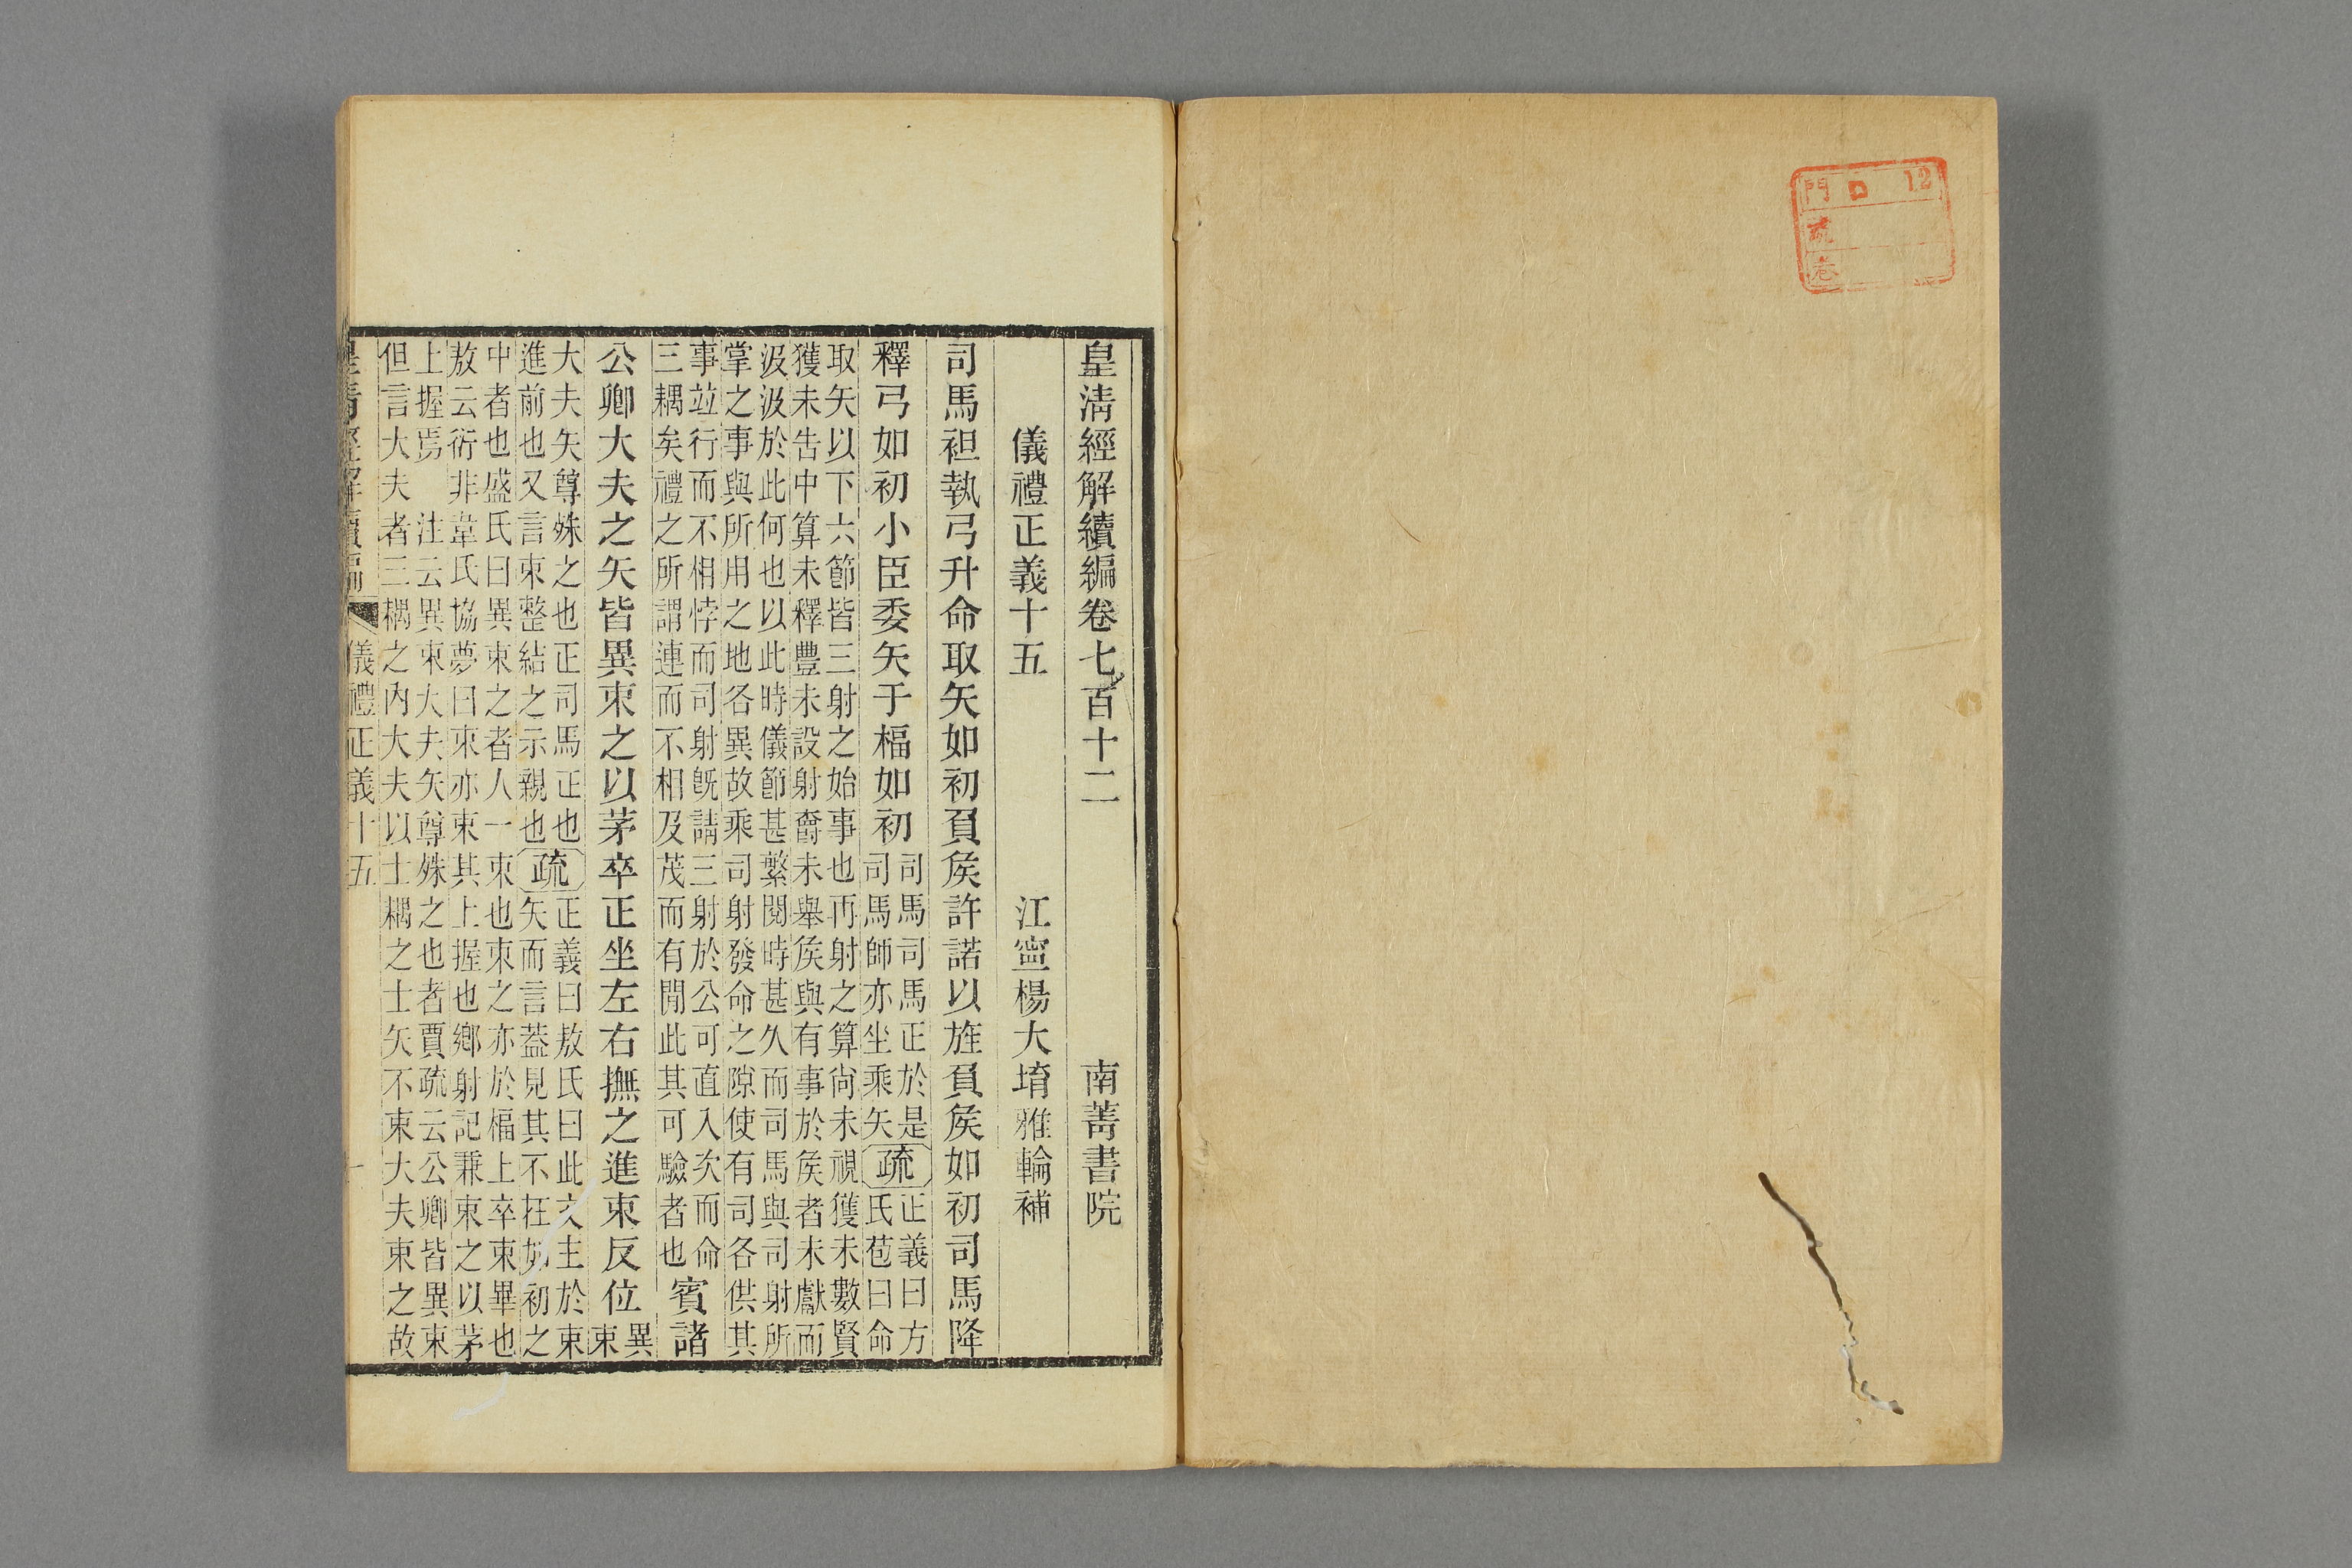 門 口 12
號
卷
皇清經解續編卷七百十二 南菁書院
儀禮正義十五 江寧楊大堉雅輪補
司馬袒執弓升命取矢如初負矦許諾以旌負矦如初司馬降
釋弓如初小臣委矢于楅如初
司馬司馬正於是
司馬師亦坐乘矢
疏
正義曰方
氏苞曰命
取矢以下六節皆三射之始事也再射之算尚未視獲未數賢
獲未告中算未釋豐未設射爵未舉矦與有事於矦者未獻而
汲汲於此何也以此時儀節甚繁閱時甚久而司馬與司射所
掌之事與所用之地各異故乘司射發命之隙使有司各供其
事竝行而不相悖而司射旣請三射於公可直入次而命
三耦矣禮之所謂連而不相及茂而有閒此其可驗者也
賓諸
公卿大夫之矢皆異束之以茅卒正坐左右撫之進束反位
異
束
大夫矢尊殊之也正司馬正也
進前也又言束整結之示親也
疏
正義曰敖氏曰此文主於束
矢而言蓋見其不在如初之
中者也盛氏曰異束之者人一束也束之亦於楅上卒束畢也
敖云衍非韋氏協夢曰束亦束其上握也鄉射記兼束之以茅
上握焉 注云異束大夫矢尊殊之也者賈疏云公卿皆異束
但言大夫者三耦之內大夫以士耦之士矢不束大夫束之故
皇清經解續編 儀禮正義十五 一